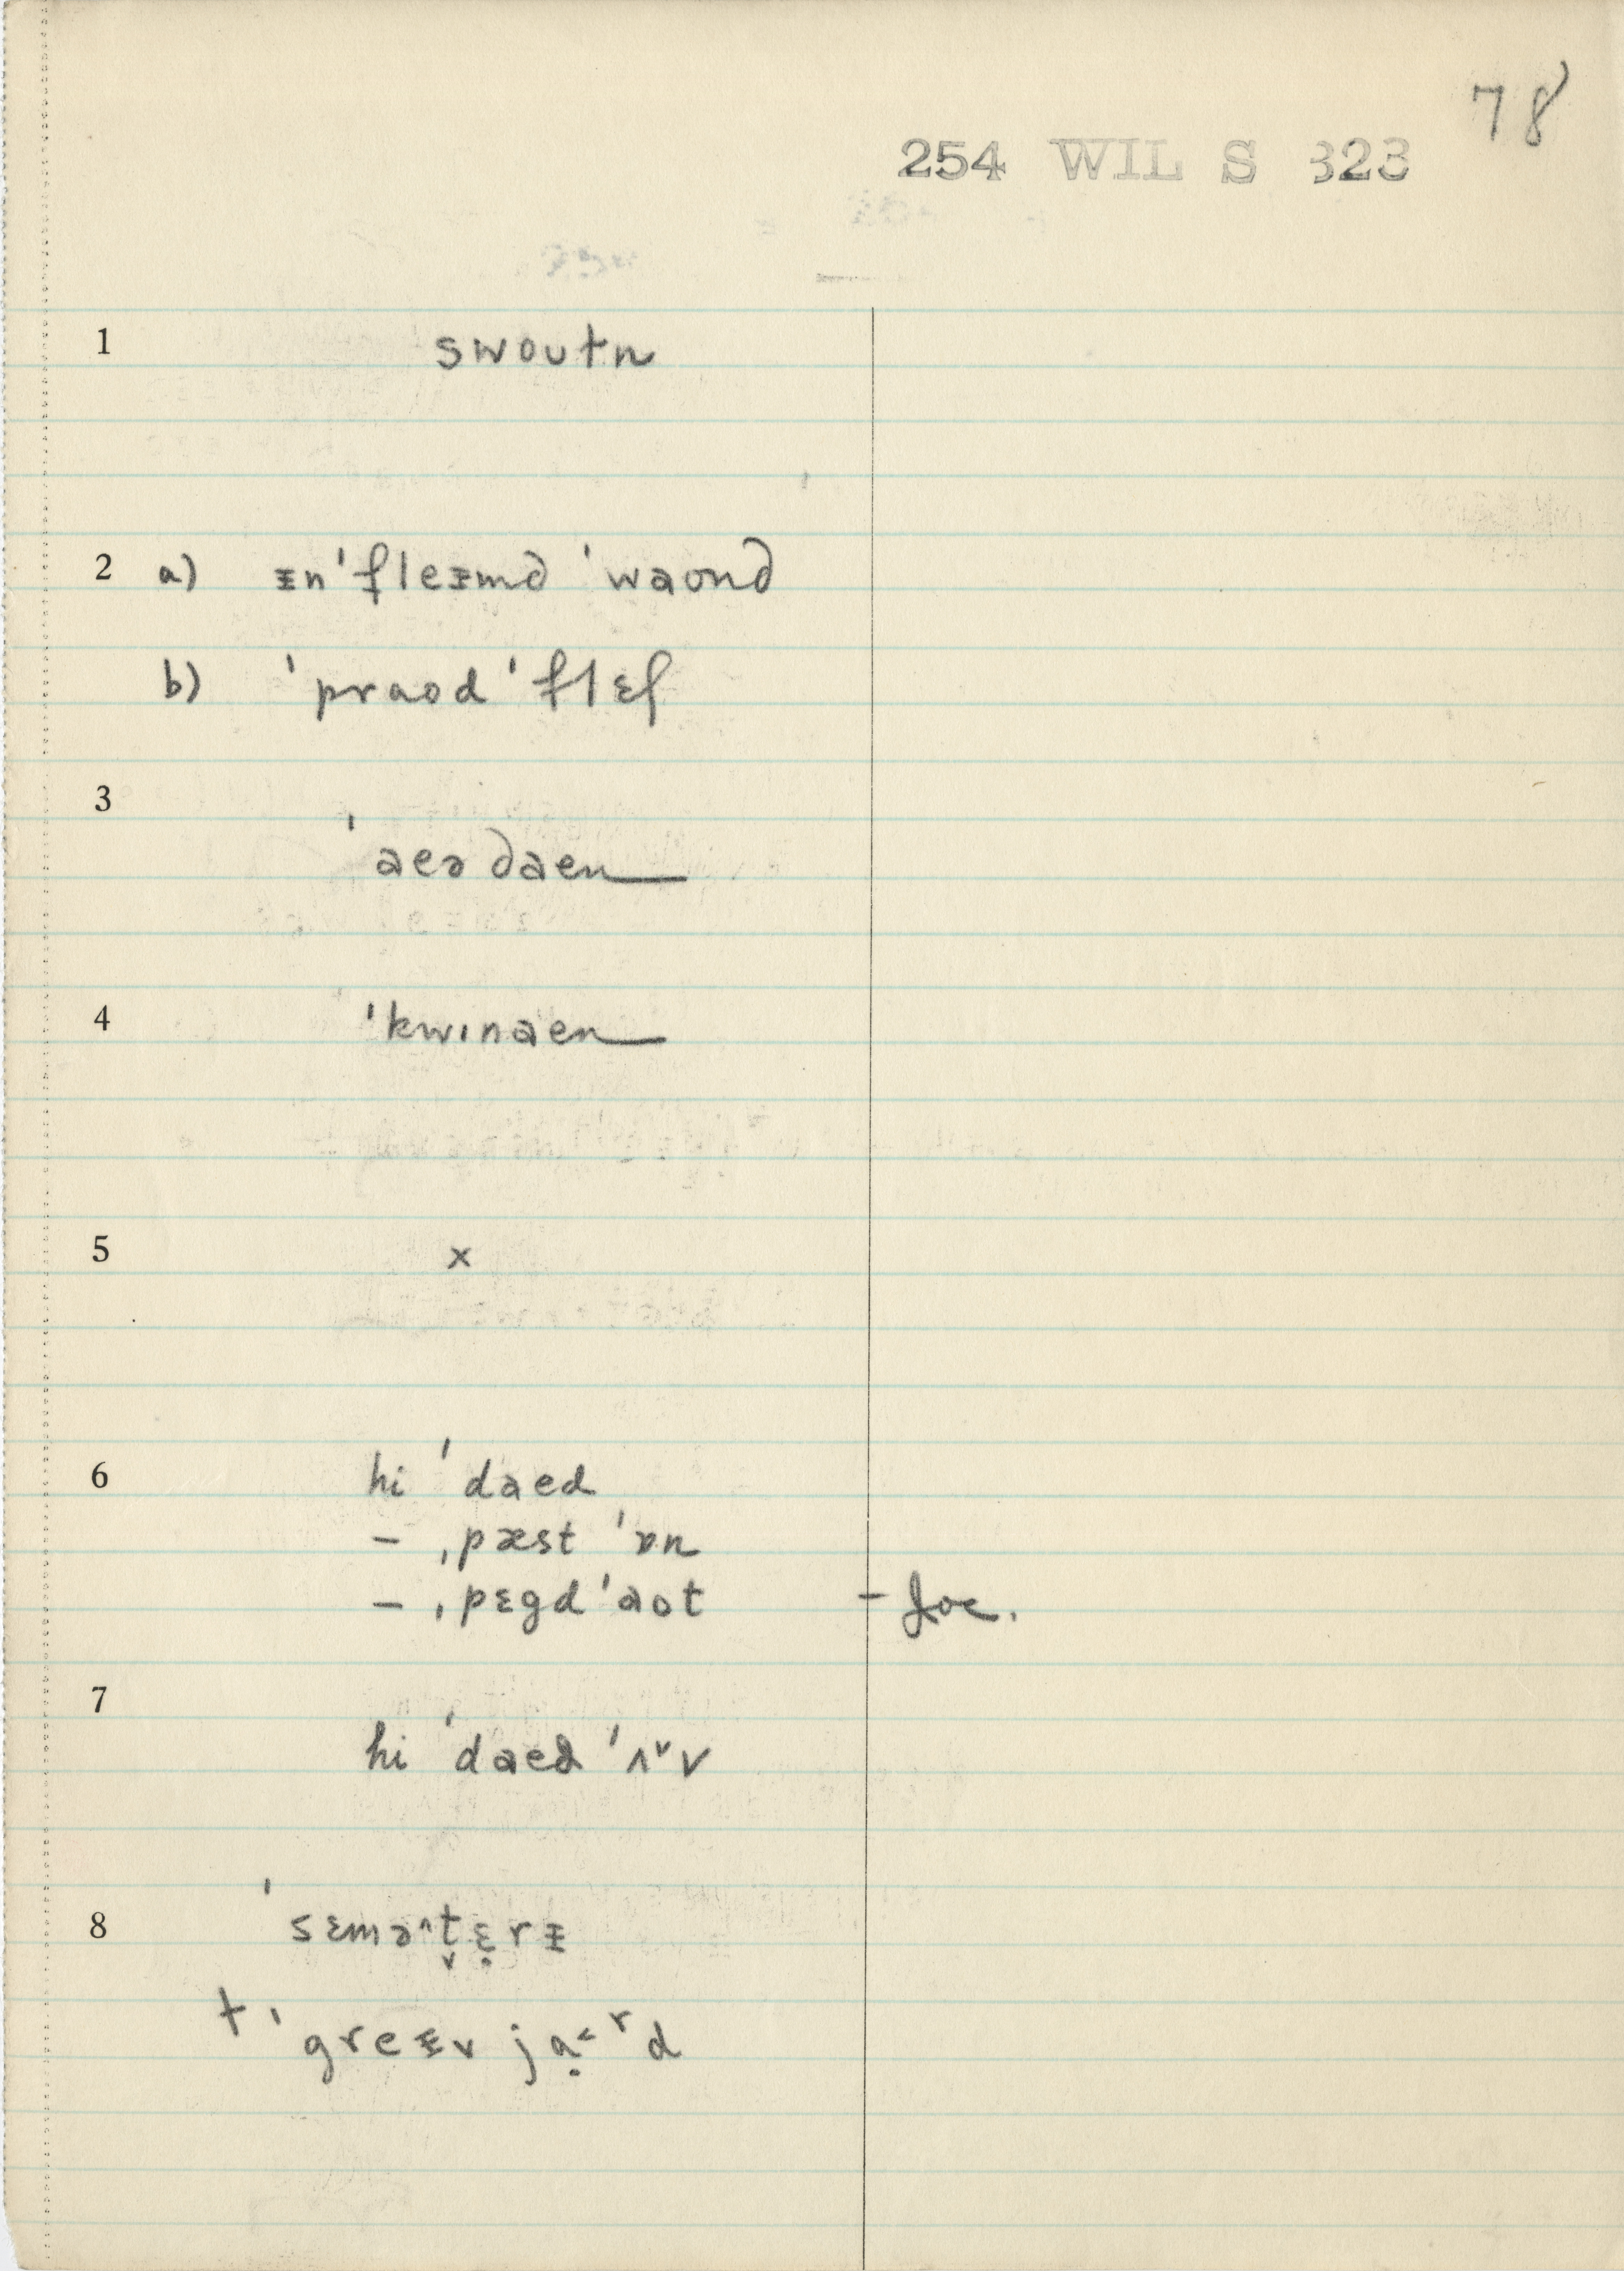 78
254 WIL S 323
1 swoutn
2 a) ᵻn'fleᵻmd 'waʊnd
b) 'praʊd 'flɛʃ
3 'aeə daen
4 'kwɪnaen
5 x
6 hi 'daed
– ˌpæst 'ɒn
– ˌpɛgd 'aʊt – Joc.
7 hi 'daed 'ʌ˅v
8 'sɛmə^t̬ɛ̣rᵻ
† 'greᵻv jạ<ʳd